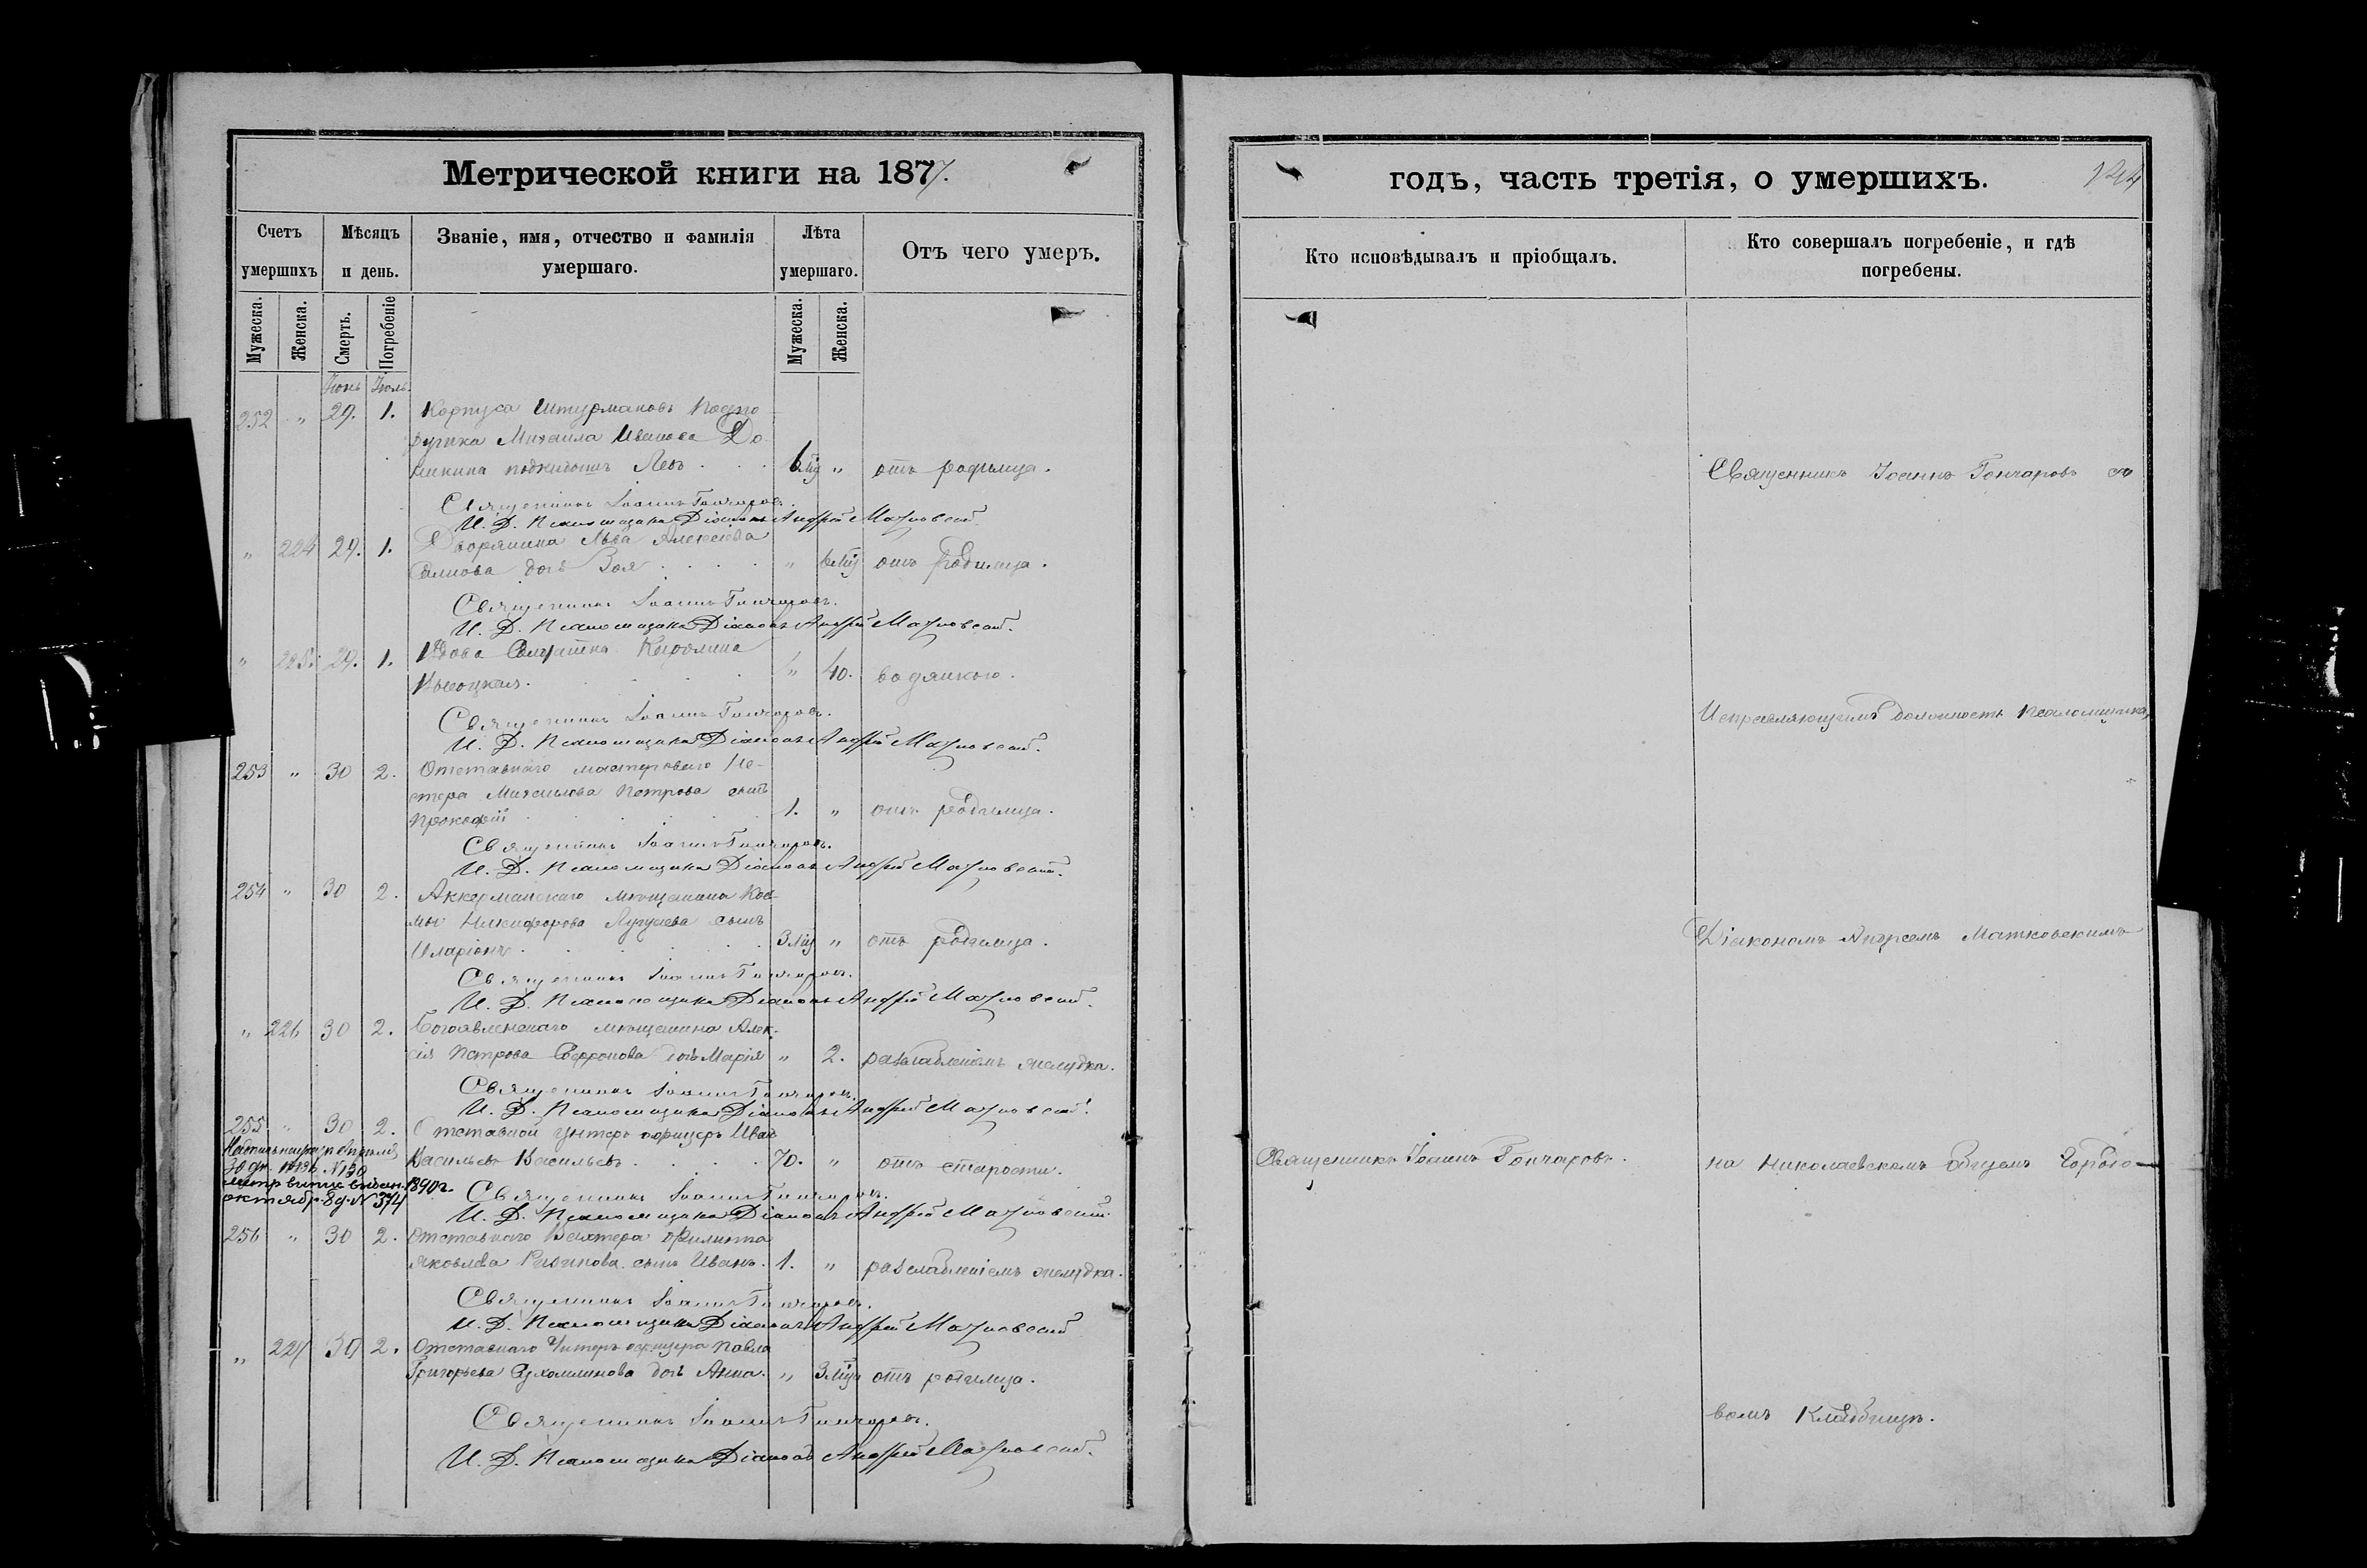 Метрической книги на 1877.
Счетъ умершихъ
Мѣсяцъ и день.
Званіе, имя, отчество и фамилія умершаго.
Лѣта умершаго.
Отъ чего умеръ.
Мужеска.
Женска.
Смерть.
Погребеніе
Мужеска.
Женска.
Іюнь Іюль.
252 " 29. 1. Корпуса Штурмановъ Подпо
ручика Михаила Иванова
подкидышъ Левъ . . . "
отъ родимца.
Священникъ Іоаннъ Гончаровъ.
И. Д. Псаломщика Діаконъ Андрей Матковскій.
" 224 29. 1. Дворянина Льва Алексѣева
дочь Зоя . . . . " 6 мц отъ родимца.
Священникъ Іоаннъ Гончаровъ.
И. Д. Псаломщика Діаконъ Андрей Матковскій.
" 225. 29. 1. Вдова Солдатка
Высоцкая. " 40. водянкою.
Священникъ Іоаннъ Гончаровъ.
И. Д. Псаломщика Діаконъ Андрей Матковскій.
253 " 30 2. Отставнаго мастероваго Не-
стера Михайлова Петрова сынъ
Прокофій 1. " отъ родимца.
Священникъ Іоаннъ Гончаровъ.
И. Д. Псаломщика Діаконъ Андрей Матковскій.
254 " 30 2. Аккерманскаго мѣщанина Коз-
мы Никифорова сынъ
Иларіонъ . . . 3 мц " отъ родимца.
Священникъ Іоаннъ Гончаровъ.
И. Д. Псаломщика Діаконъ Андрей Матковскій.
" 226 30 2. Богоявленскаго мѣщанина Алек-
сія Петрова дочь Марія " 2. разслабленіемъ желудка.
Священникъ Іоаннъ Гончаровъ.
И. Д. Псаломщика Діаконъ Андрей Матковскій.
255 " 30 2. Отставной унтеръ офицеръ Иванъ
Васильевъ Васильевъ . . . . 70. " отъ старости.
30 № 130
выдан. 1890 г.
октября 8 д. № 374
Священникъ Іоаннъ Гончаровъ.
И. Д. Псаломщика Діаконъ Андрей Матковскій.
256 " 30 2. Отставнаго Вахтера Филиппа
Яковлева сынъ Иванъ. 1. " разслабленіемъ желудка.
Священникъ Іоаннъ Гончаровъ.
И. Д. Псаломщика Діаконъ Андрей Матковскій
" 227 30 2. Отставнаго Унтеръ офицера Павла
Григорьева Сухомлинова дочь Анна. " 3 мца отъ родимца.
Священникъ Іоаннъ Гончаровъ.
И. Д. Псаломщика Діаконъ Андрей Матковскій.
годъ, часть третія, о умершихъ.
Кто исповѣдывалъ и пріобщалъ.
Кто совершалъ погребеніе, и гдѣ погребены.
Священникъ Іоаннъ Гончаровъ съ
Исправляющимъ должность Псаломщика,
Діакономъ Андреемъ Матковскимъ
Священникъ Іоаннъ Гончаровъ.
на Николаевскомъ общемъ Городо-
вомъ Кладбищѣ.